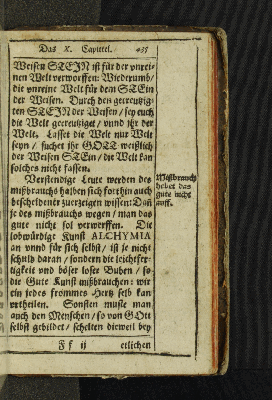 Das X. Capittel. 435
Weisen STEIN ist für der vnrei-
nen Welt verworffen: Wiederumb/
die vnreine Welt für dem STEin
der Weisen. Durch den gecreutzig-
ten STEIN der Weisen / sey euch
die Welt gecreutziget / vnnd jhr der
Welt. Lasset die Welt nur Welt
seyn / suchet jhr GOTT weißlich
der Weisen STEin / die Welt kan
solches nicht fassen.
Verstendige Leute werden des
mißbrauchs halben sich forthin auch
bescheidener zuerzeigen wissen: Dañ
je des mißbrauchs wegen / man das
gute nicht sol verwerffen. Die
lobwürdige Kunst ALCHYMIA
an vnnd für sich selbst / ist je nicht
schuld daran / sondern die leichtfer-
tigkeit vnd böser loser Buben / so
die Gute Kunst mißbrauchen: wir
ein jedes frommes Hertz selb kan
vrtheilen. Sonsten muste man
auch den Menschen / so von GOtt
selbst gebildet / schelten dieweil bey
Ff ij etlichen
Mißbrauch
hebet das
gute nicht
auff.